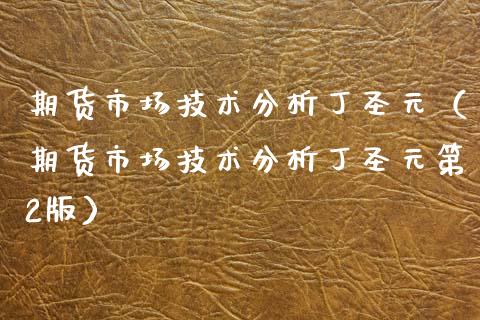 期货市场技术分析丁圣元（
期货市场技术分析丁圣元第
2版）